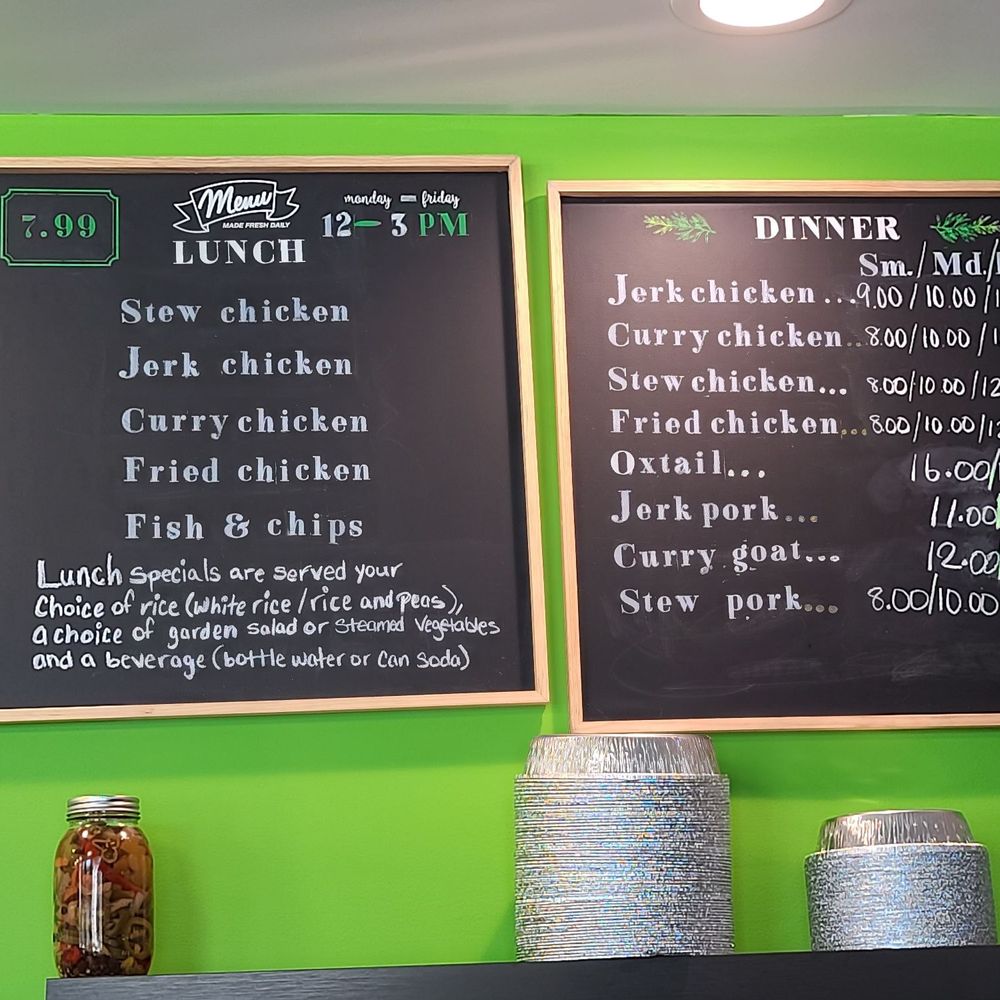 7.99
Menu
MADE FRESH DAILY
LUNCH
monday - friday
12 - 3 PM
Stew chicken
Jerk chicken
Curry chicken
Fried chicken
Fish & chips
Lunch specials are served your
Choice of rice (white rice / rice and peas),
a choice of garden salad or steamed vegetables
and a beverage (bottle water or can soda)
DINNER
Sm./Md./
Jerk chicken ...9.00 / 10.00 /
Curry chicken..8.00/10.00 /
Stew chicken... 8.00/10.00 /12
Fried chicken...8.00/10.00/
Oxtail... 16.00/
Jerk pork... 11.00/
Curry goat... 12.00/
Stew pork... 8.00/10.00